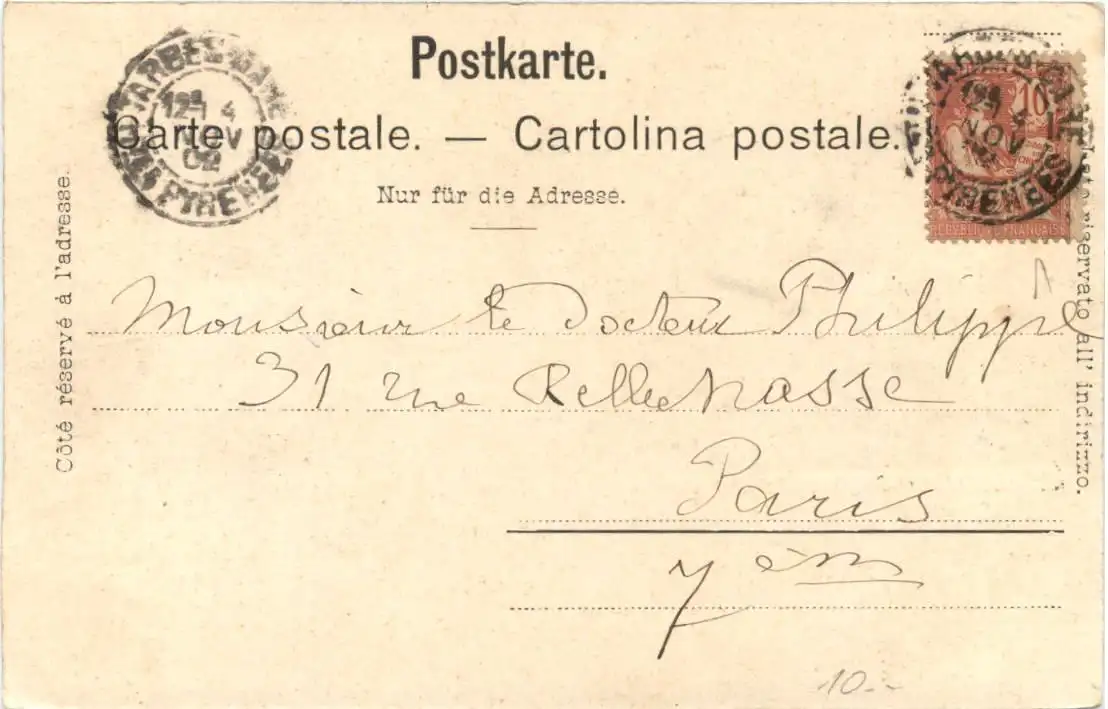 Postkarte.
Carte postale. — Cartolina postale.
Nur für die Adresse.
Côté réservé à l'adresse.
riservato all' indirizzo.
TARBES
4
NOV
02
PYRENEES
10
NOV
PYRENEES
REPUBLIQUE FRANÇAISE
Monsieur le Docteur Philippe
31 rue Bellechasse
Paris
7 èm
10.-